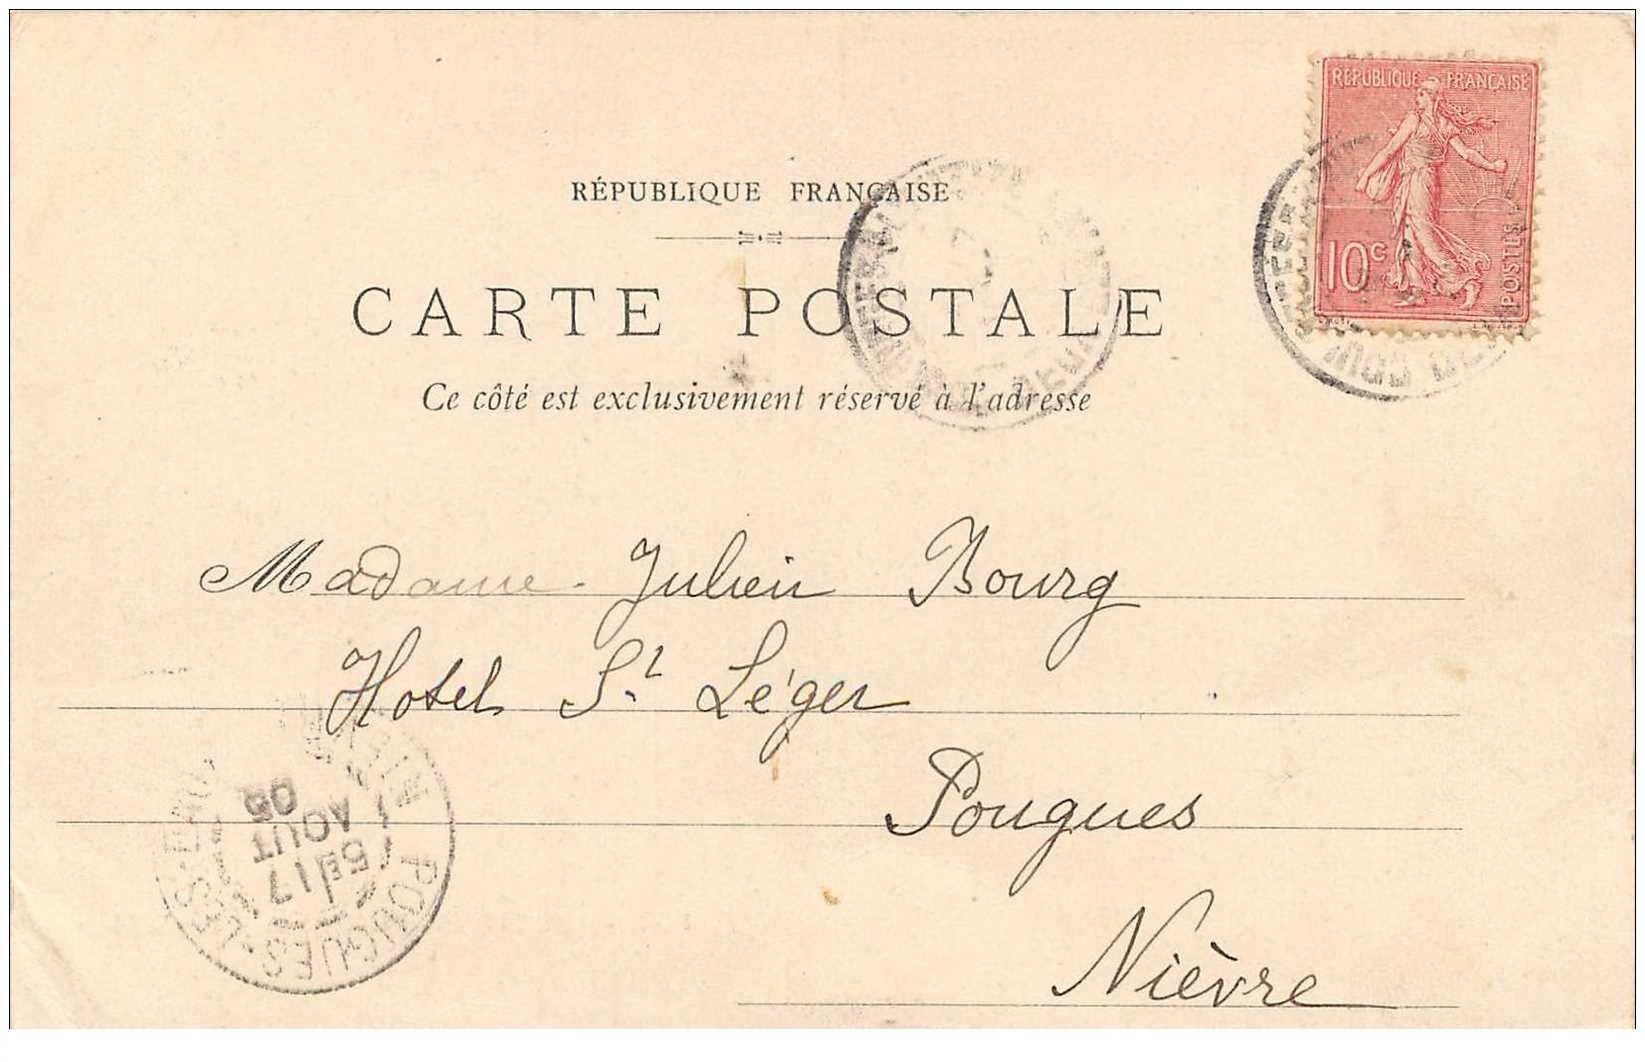 RÉPUBLIQUE FRANÇAISE
10c
POSTES
RÉPUBLIQUE FRANÇAISE
CARTE POSTALE
Ce côté est exclusivement réservé à l'adresse
Madame Julien Bourg
Hotel St Léger
Pougues
Nièvre
POUGUES-LES-EAUX
5E 17
AOUT
05